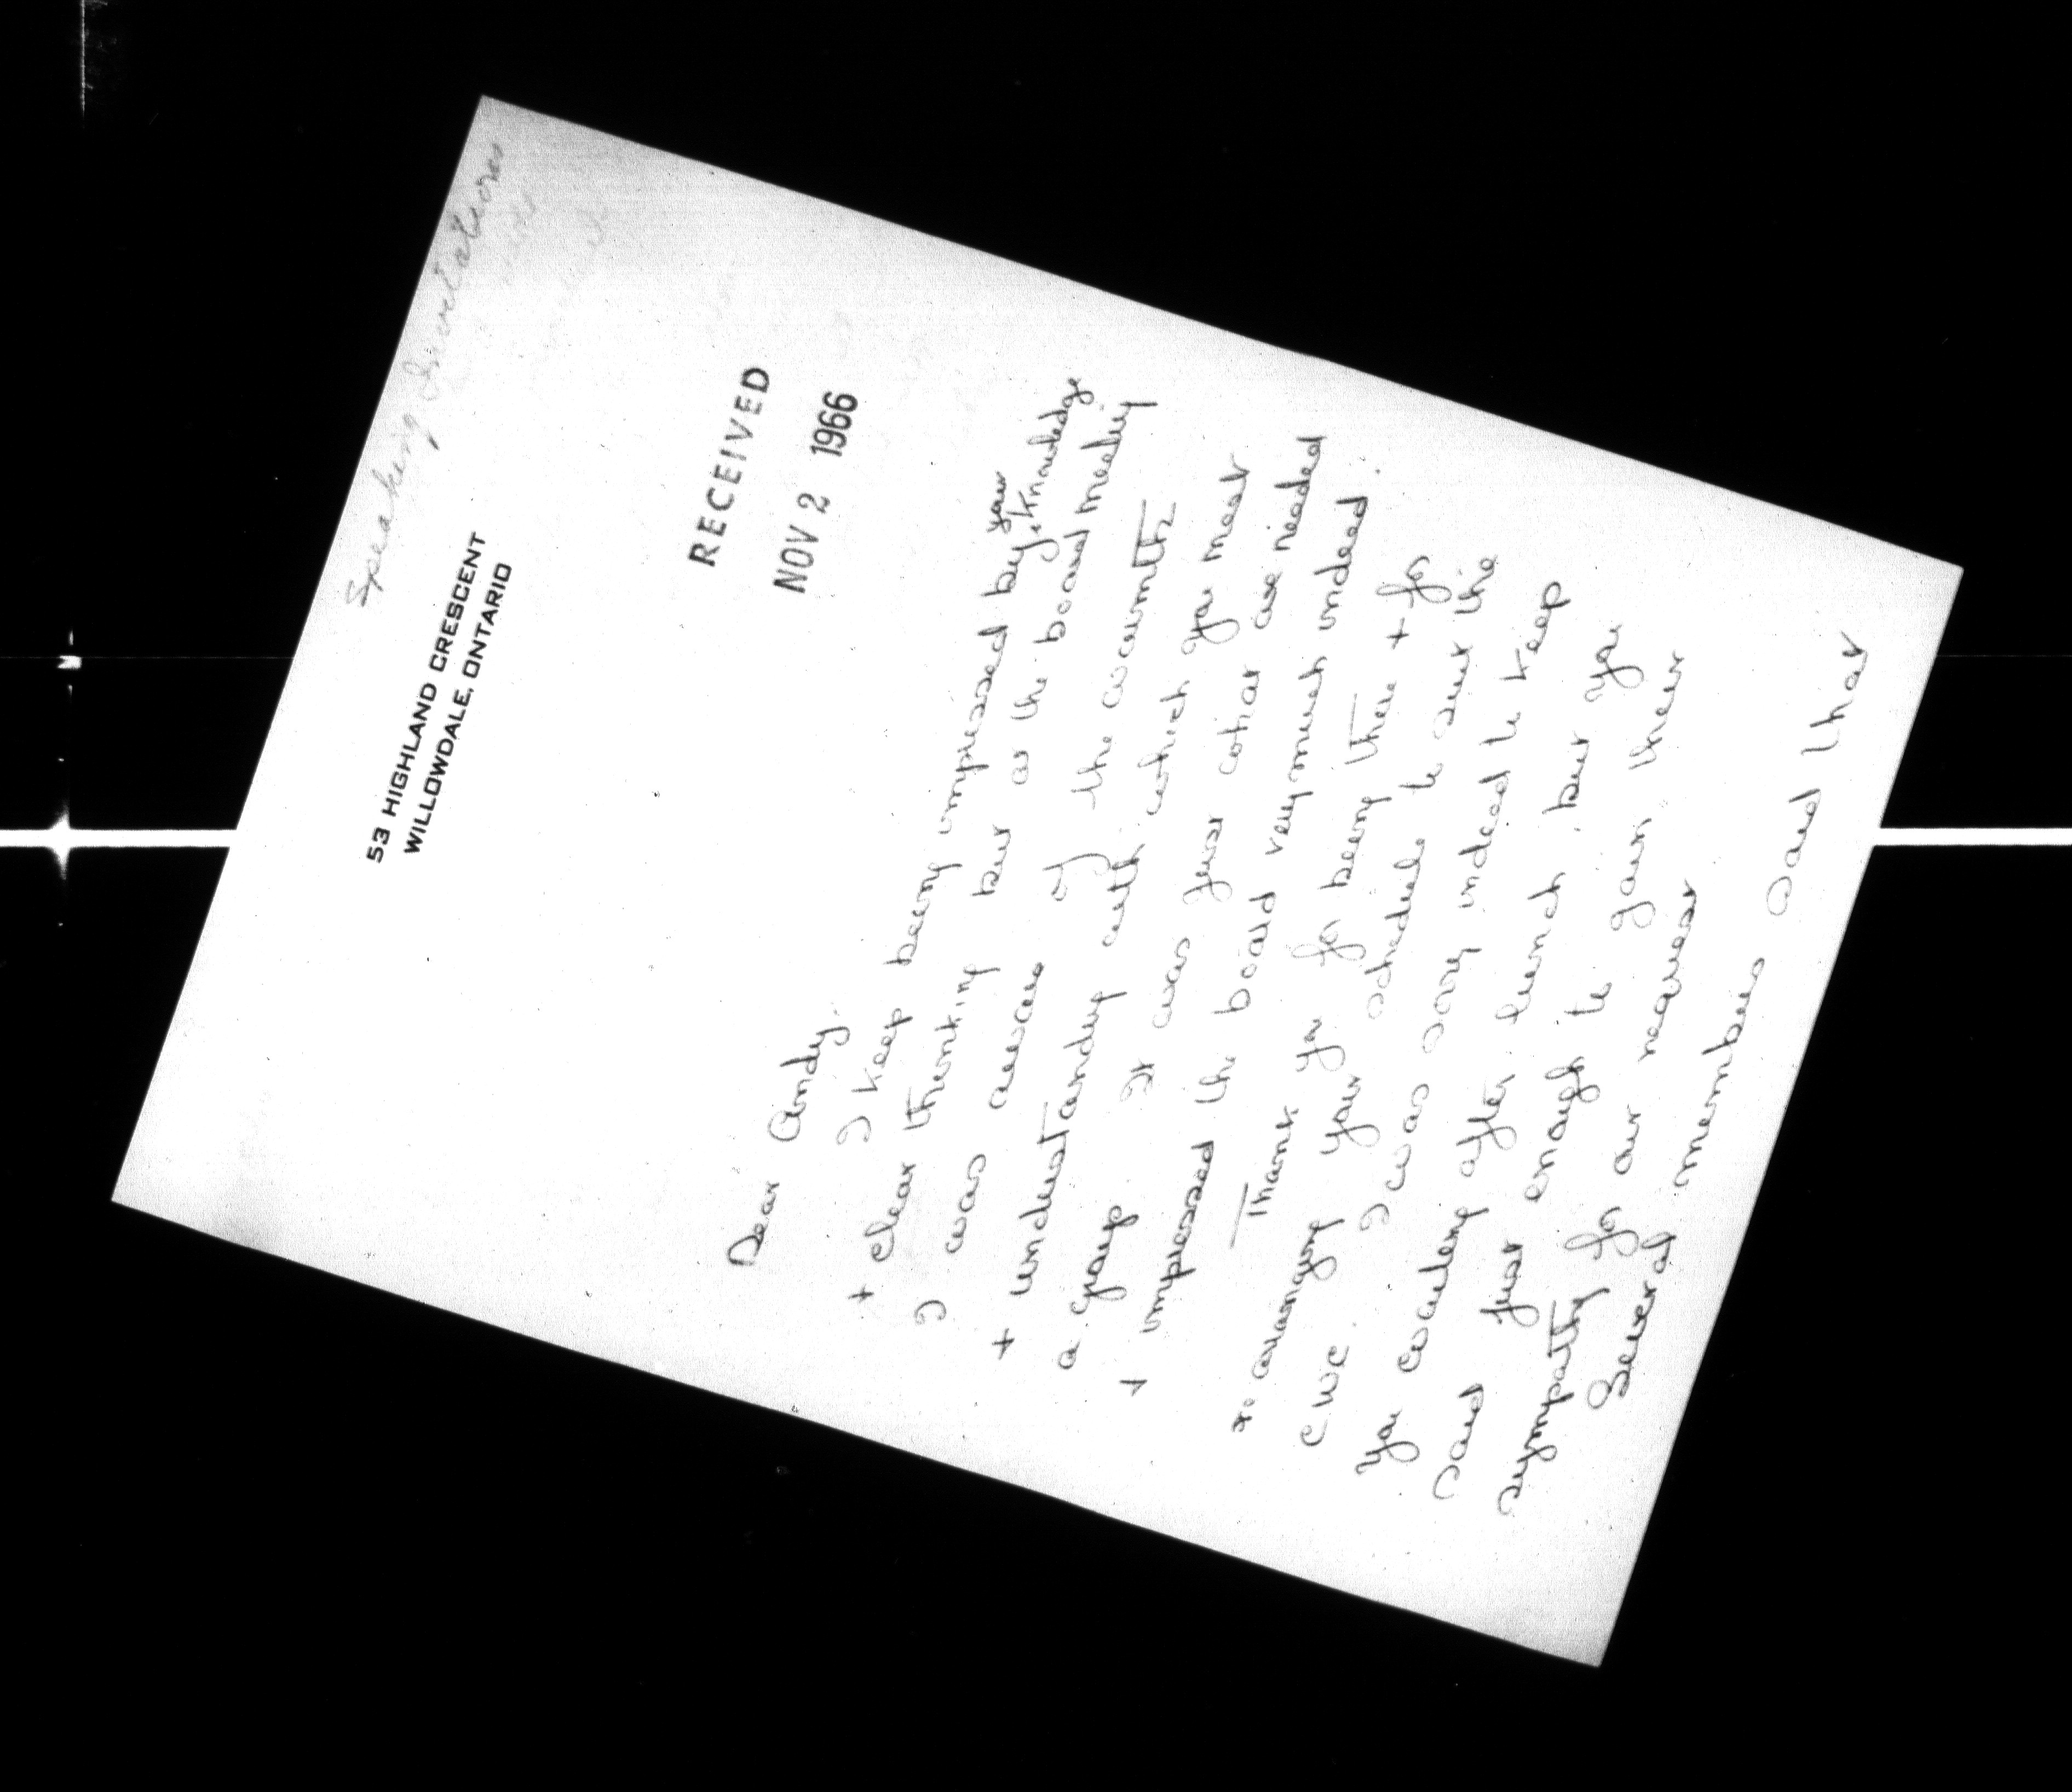 Speaking Invitations
53 HIGHLAND CRESCENT
WILLOWDALE, ONTARIO
RECEIVED
NOV 2 1966
Dear Andy.
I keep being impressed by your knowledge
+ clear thinking but at the board meeting
I was aware of the warmth
+ understanding with which you meet
a group. It was just what was needed
+ impressed the board very much indeed.
Thank you for being there + for
so arranging your schedule to suit the
CWC. I was sorry indeed to keep
you waiting after lunch, but you
said just enough to gain their
sympathy for our request
Several members said that